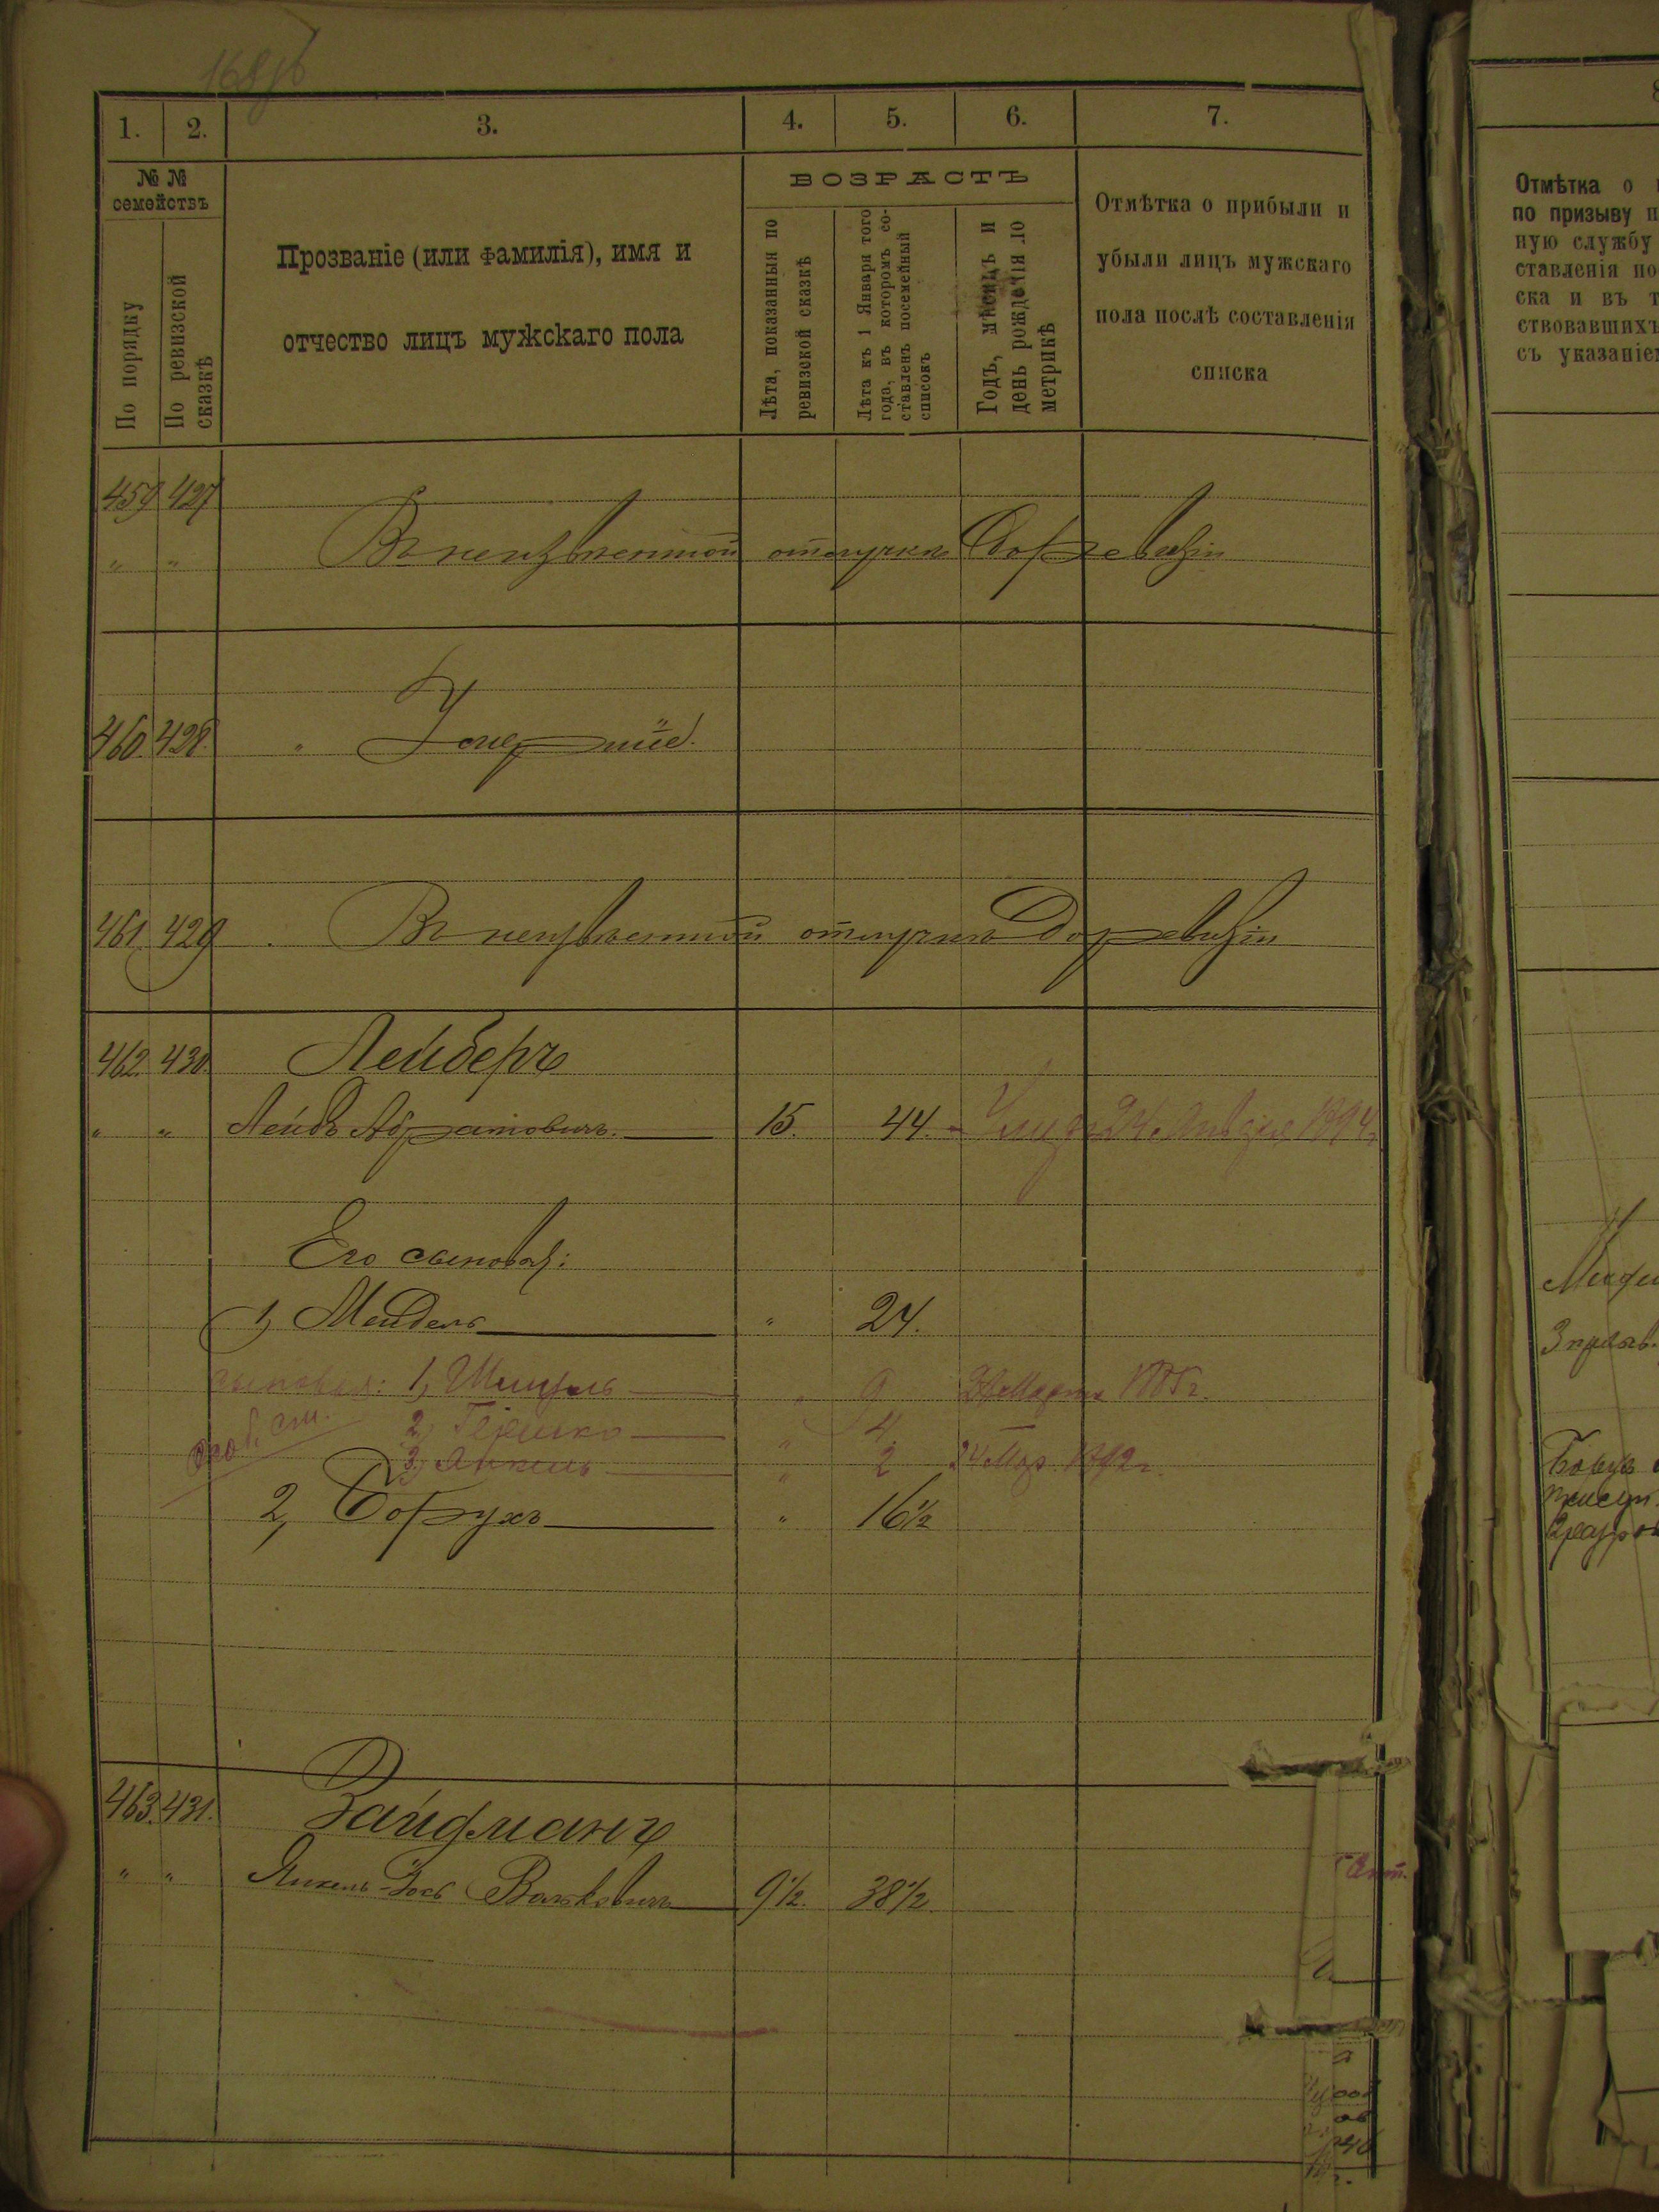 1. 2. 3. 4. 5. 6. 7.
№ №
семействъ
По порядку
По ревизской
сказкѣ
Прозваніе (или фамилія), имя и
отчество лицъ мужскаго пола
ВОЗРАСТЪ
Лѣта, показанныя по
ревизской сказкѣ
Лѣта къ 1 Января того
года, въ которомъ со-
ставленъ посемейный
списокъ
Годъ, мѣсяцъ и
день рожденія по
метрикѣ
Отмѣтка о прибыли и
убыли лицъ мужскаго
пола послѣ составленія
списка
459 427
" " Въ неизвѣстной отлучкѣ до ревизіи
460. 428. " Умершіе.
461. 429 Въ неизвѣстной отлучкѣ до ревизіи
462. 430. Лейберъ
" " Лейбъ Абрамовичъ. 15. 44. Января 1894 г.
Его сыновья:
1, Мендель " 24.
сыновья: 1, " 9 Марта
2, Гершко " 4 —
3, Янкель " 2 24 Мар. 1892 г.
2, Борухъ " 16½
463. 431. Зайдманъ
" " Янкель-Іось Волковичъ 9½. 38½.
Отмѣтка о
по призыву
ную службу
ставленія
ска и въ
ствовавшихъ
съ